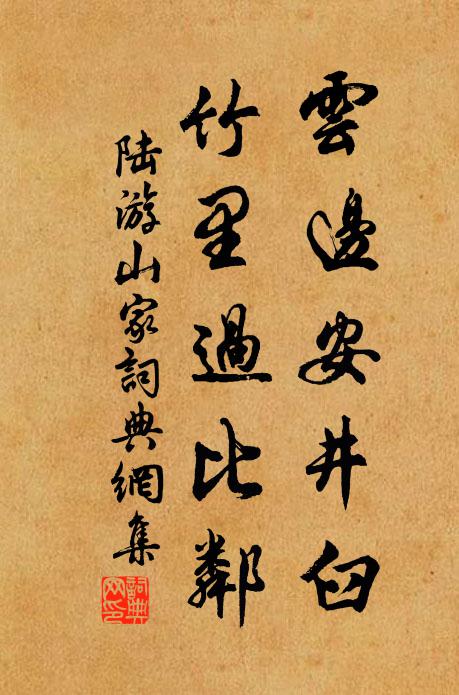 雲邊安井臼
竹里過比鄰
陸游山家詞典網集
詞典网印